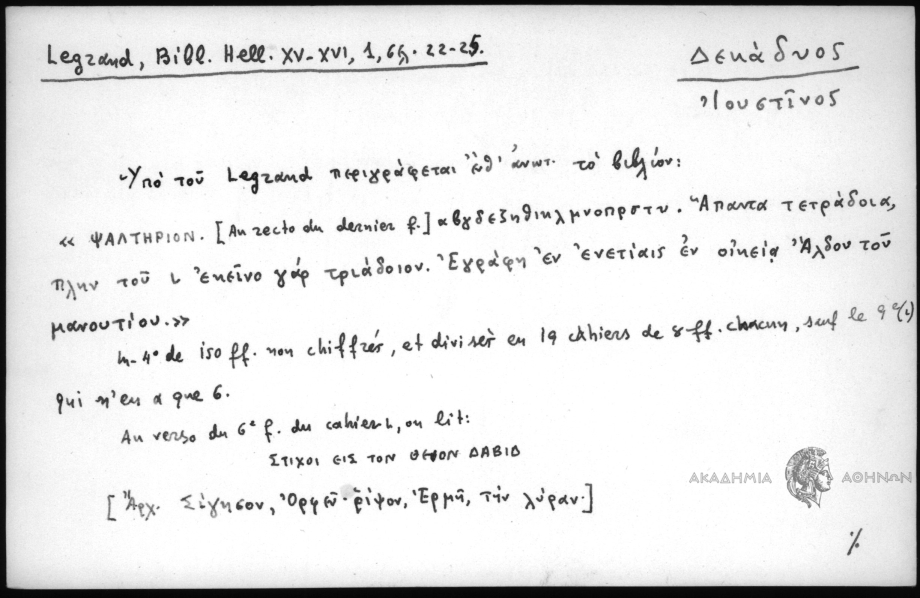 Legrand, Bibl. Hell. XV-XVI, 1, σελ. 22-25.
Δεκάδυος
Ἰουστῖνος
Ὑπό τοῦ Legrand περιγράφεται ἔνθ' ἀνωτ. τό βιβλίον:
« ΨΑΛΤΗΡΙΟΝ. [Au recto du dernier f.] αβγδεζηθικλμνοπρστυ. Ἅπαντα τετράδοια,
πλην τοῦ ι ἐκεῖνο γάρ τριάδοιον. Ἐγράφη ἐν ἐνετίαις ἐν οἰκείᾳ Ἄλδου τοῦ
μανουτίου.»
In-4° de 150 ff. non chiffrés, et divisés en 19 cahiers de 8 ff. chacun, sauf le 9e (ι)
qui n'en a que 6.
Au verso du 6e f. du cahier ι, on lit:
ΣΤΙΧΟΙ ΕΙΣ ΤΟΝ ΘΕΙΟΝ ΔΑΒΙΔ
[Ἀρχ. Σίγησον, Ὀρφεῦ· ῥίψον, Ἑρμῆ, τήν λύραν.]
ΑΚΑΔΗΜΙΑ ΑΘΗΝΩΝ
%